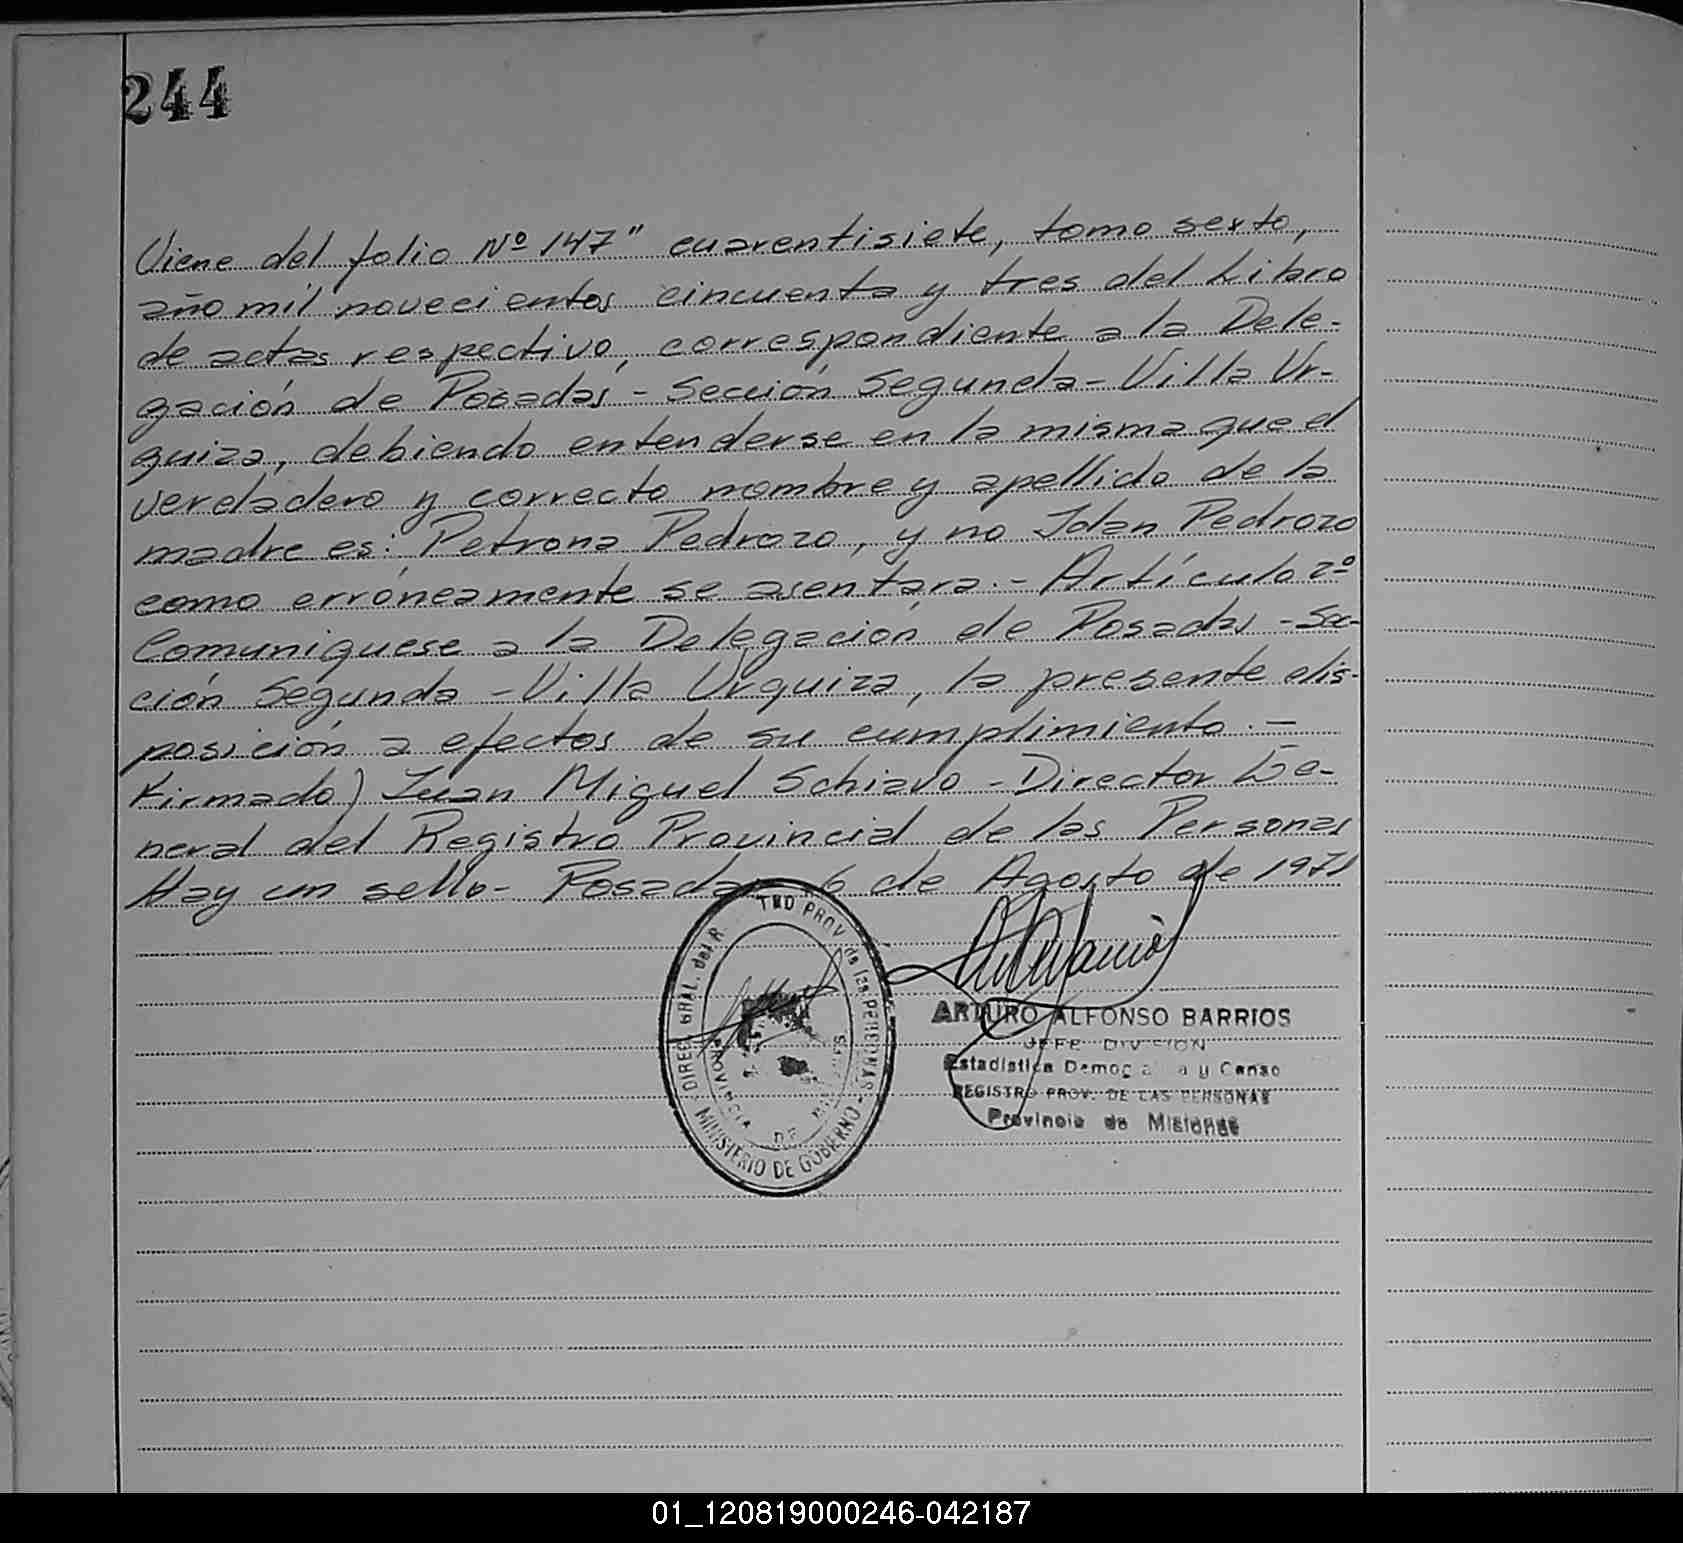 244
Viene del folio Nº 147" cuarentisiete, tomo sexto,
año mil novecientos cincuenta y tres del Libro
de actas respectivo, correspondiente a la Dele-
gación de Posadas - Sección Segunda - Villa Ur-
quiza, debiendo entenderse en la misma que el
verdadero y correcto nombre y apellido de la
madre es: Petrona Pedrozo, y no Idan Pedrozo
como erróneamente se asentara.- Artículo 2º
Comuniquese a la Delegación de Posadas - Sec-
ción Segunda - Villa Urquiza, la presente dis-
posición a efectos de su cumplimiento.-
Firmado) Juan Miguel Schiavo - Director Ge-
neral del Registro Provincial de las Personas
Hay un sello- Posadas 6 de Agosto de 1971
DIREC. GRAL. del R TRO PROV. de las PERSONAS
MINISTERIO DE GOBIERNO
PROVINCIA DE
ARTURO ALFONSO BARRIOS
JEFE DIVISION
Estadística y Censo
REGISTRO PROV. DE LAS PERSONAS
Provincia de Misiones
01_120819000246-042187